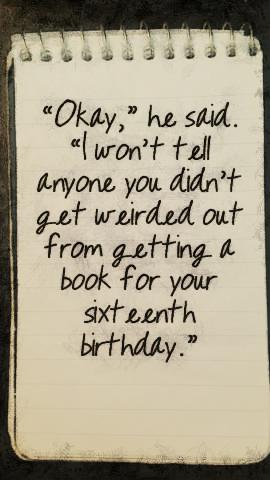 “Okay,” he said.
“I won't tell
anyone you didn't
get weirded out
from getting a
book for your
sixteenth
birthday.”